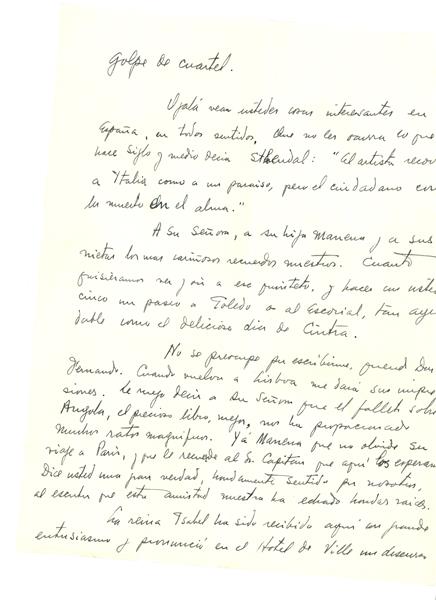 golpe de cuartel.
Ojalá vean ustedes cosas interesantes en
España, en todos sentidos, Que no les ocurra lo que
hace Siglo y medio decía Sthendal: "Al artista
a Ytalia como a un paraiso, pero el ciudadano con
la muerte en el alma."
A Su Señora, a su hija Manena y a sus
nietas los mas cariñosos recuerdos nuestros. Cuanto
quisiéramos ver y oir a ese quinteto, y hacer con
cinco un paseo a Toledo o al Escorial, tan
dable como el delicioso dia de Cintra.
No se preocupe por escribirme, querid Don
Fernando. Cuando vuelva a Lisboa me dará sus impre
siones. Le ruego decir a Su Señora que el follet sobre
Angola, el precioso libro, mejor, nos ha proporcionado
muchos ratos magnificos. Ya Manena que no olvide su
viaje a Paris, y que le recuerde al Sr. Capitan que aqui los esperan
Dice usted una gran verdad, hondamente sentida por nosotros,
al escribir que esta amistad nuestra ha echado hondas raices.
La reina Isabel ha sido recibida aquí con grande
entusiasmo y pronunció en el Hotel de Ville un discurso